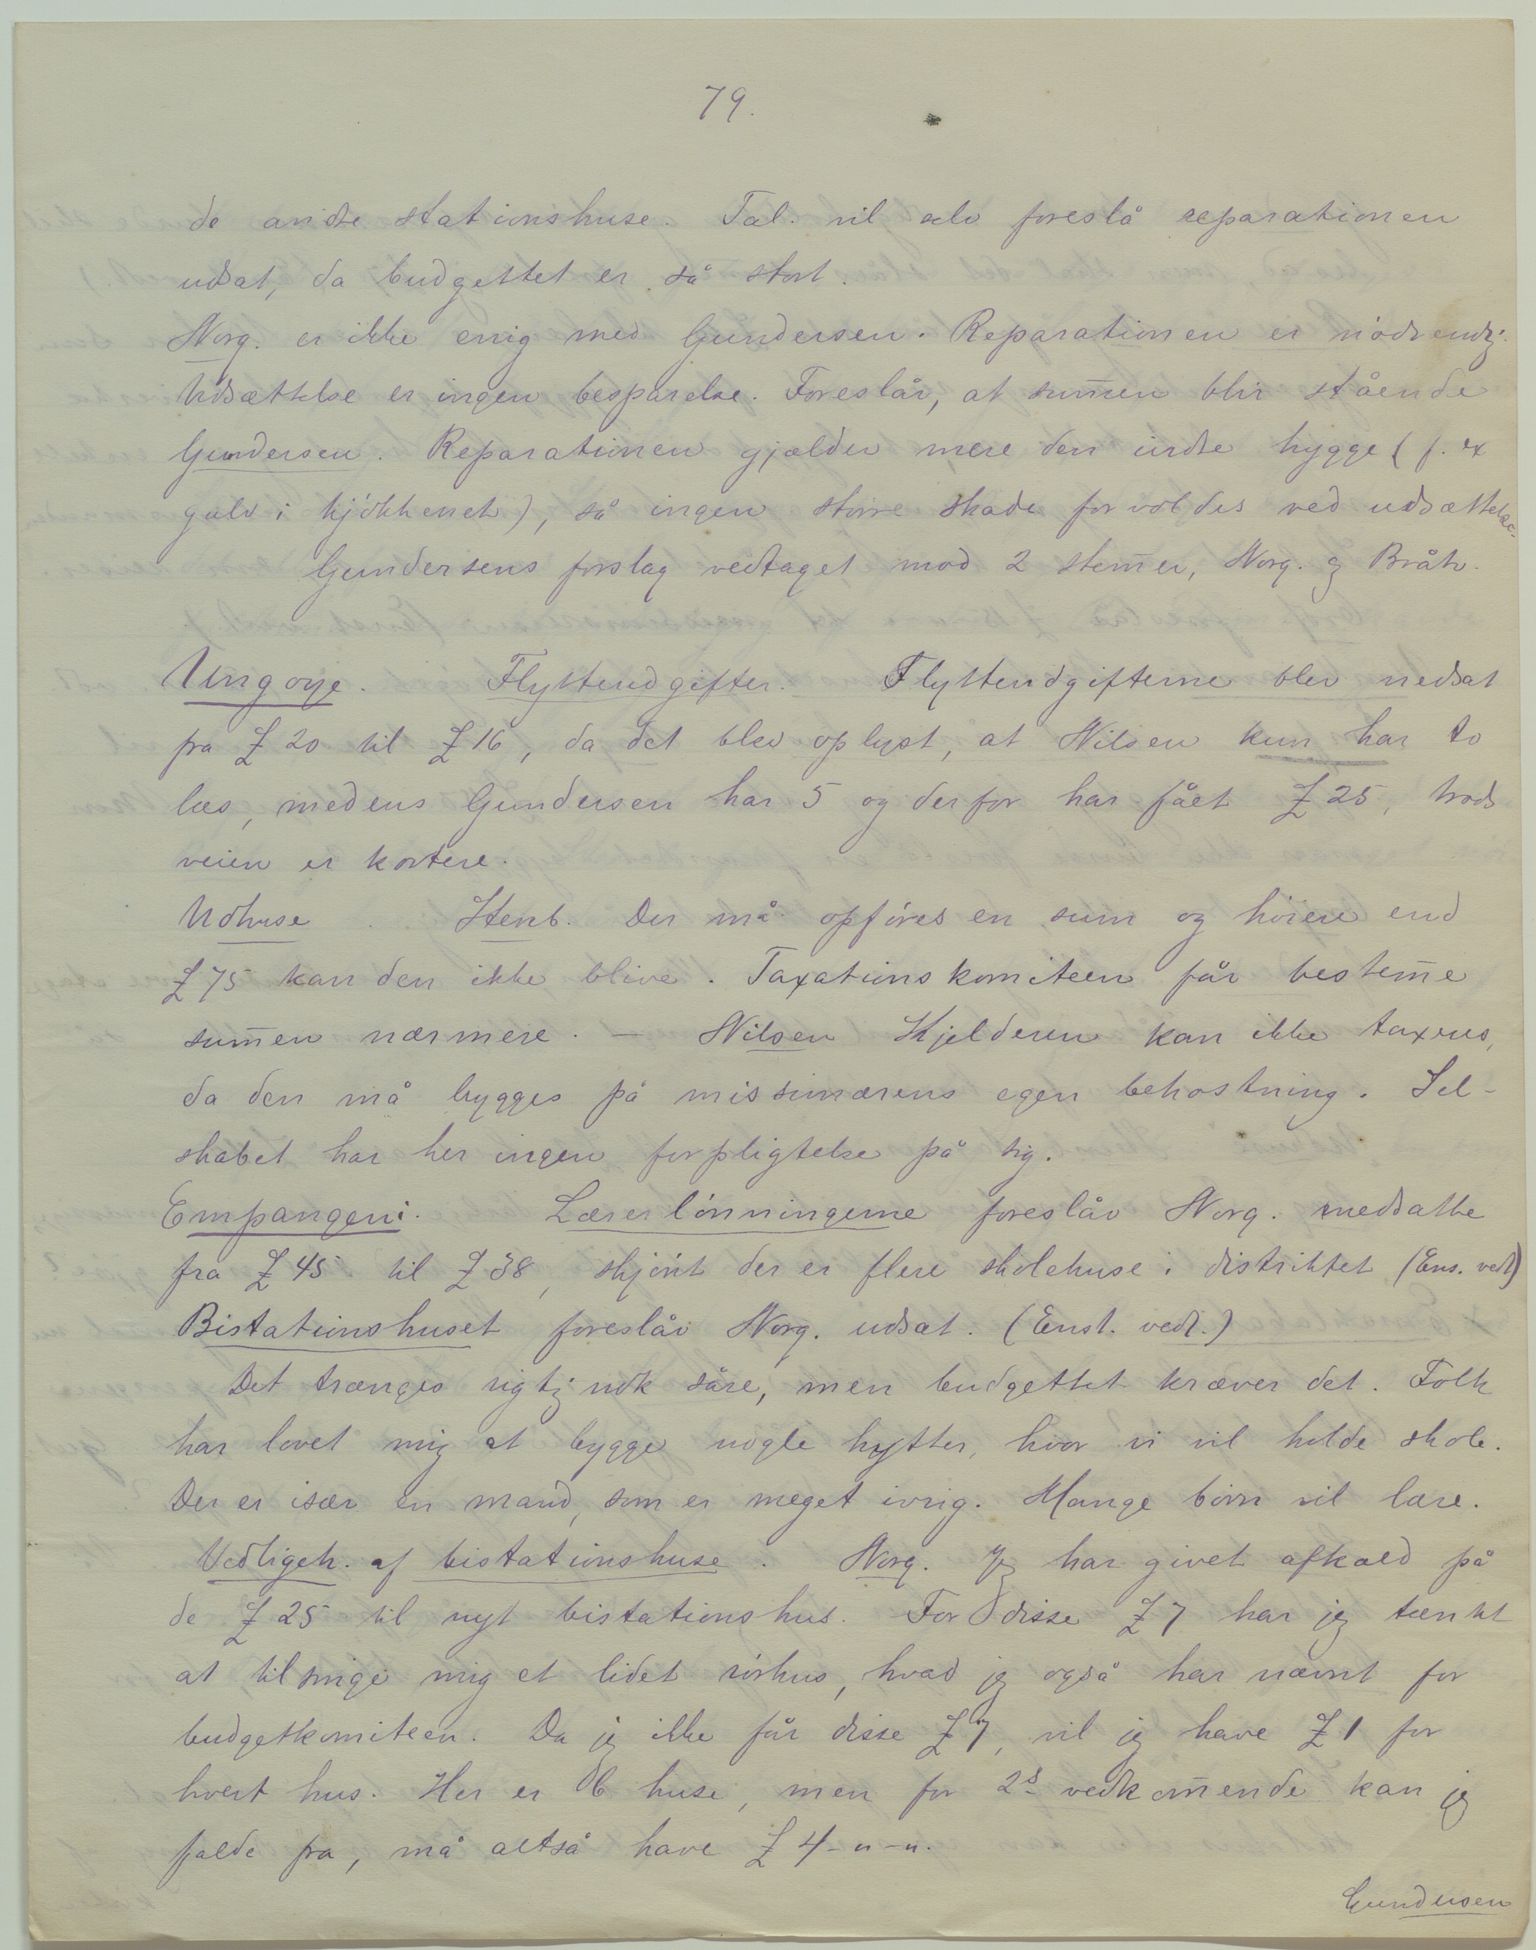 79.
de andre stationshuse. Tal. vil selv foreslå reparationen
udsat, da budgettet er så stort.
Norg. er ikke enig med Gundersen. Reparationen er nödvendig.
Udsættelse er ingen besparelse. Foreslår, at sum̅en blir stående
Gundersen. Reparationen gjælder mere den indre hygge (f. ex
gulv i kjökkenet), så ingen större skade forvoldes ved udsættelse.
Gundersens forslag vedtaget mod 2 stem̅er, Norg. og Bråtv.
Ungoye. Flytteudgifter. Flytteudgifterne blev nedsat
fra £ 20 til £ 16, da det blev oplyst, at Nilsen kun har to
læs, medens Gundersen har 5 og derfor har fået £ 25, trods
veien er kortere.
Udhuse. Stenb. Der må opföres en sum og höiere end
£ 75 kan den ikke blive. Taxationskomiteen får bestem̅e
sum̅en nærmere. — Nilsen Kjelderen kan ikke taxeres,
da den må bygges på missionærens egen bekostning. Sel-
skabet har her ingen forpligtelse på sig.
Empangeni. Lærerlönningerne foreslår Norg. nedsatte
fra £ 45 til £ 38, skjönt der er flere skolehuse i distriktet (Ens. vedt)
Bistationshuset foreslår Norg. udsat. (Enst. vedt.)
Det trænges rigtig nok såre, men budgettet kræver det. Folk
har lovet mig at bygge nogle hytter, hvor vi vil holde skole.
Der er især en mand, som er meget ivrig. Mange börn vil lære.
Vedligeh. af bistationshuse. Norg. Jeg har givet afkald på
de £ 25 til nyt bistationshus. For disse £ 7 har jeg tænkt
at tilsnige mig et lidet rörhus, hvad jeg også har nævnt for
budgetkomiteen. Da jeg ikke får disse £ 7, vil jeg have £ 1 for
hvert hus. Her er 6 huse, men for 2s vedkom̅ende kan jeg
falde fra, må altså have £ 4-"-".
Gundersen